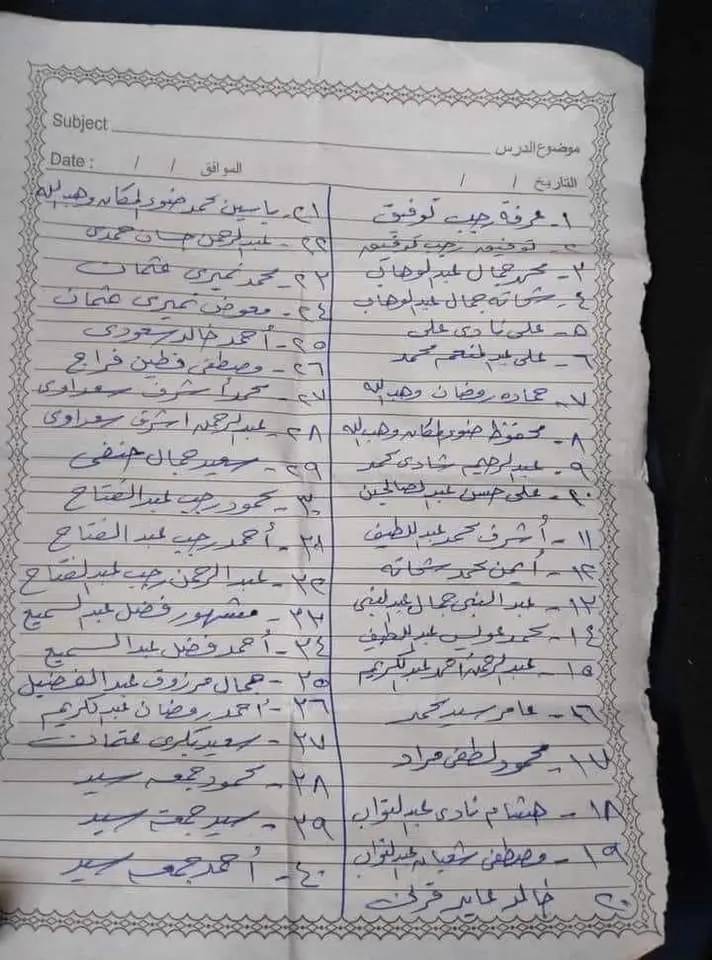 Subject
موضوع الدرس
Date : / / الموافق
التاريخ / /
١- عرفة رجب توفيق
٢- توفيق رجب توفيق
٣- محمد جمال عبد الوهاب
٤- شحاته جمال عبد الوهاب
٥- على نادى على
٦- على عبد المنعم محمد
٧- حماده رمضان وهب الله
٨- محفوظ ضوى المكان وهب الله
٩- عبد الرحيم شادى محمد
١٠- على حسن عبد الصالحين
١١- أشرف محمد عبد اللطيف
١٢- أيمن محمد شحاته
١٣- عبد النبى جمال عبد النبى
١٤- محمد عويس عبد اللطيف
١٥- عبد الرحمن أحمد عبد الكريم
١٦- عامر سيد محمد
١٧- محمود لطفى مراد
١٨- هشام نادى عبد التواب
١٩- مصطفى شعبان عبد التواب
٢٠ خالد عايد قرنى
٢١- ياسين محمد ضوى المكان وهب الله
٢٢- عبد الرحمن حسان حمدى
٢٣- محمد نميرى عثمان
٢٤- معوض نميرى عثمان
٢٥- أحمد خالد سعودى
٢٦- مصطفى فطين فراج
٢٧- محمد أشرف سعداوى
٢٨- عبد الرحمن اشرف سعداوى
٢٩- سعيد جمال حنفى
٣٠- محمود رجب عبد الفتاح
٣١- أحمد رجب عبد الفتاح
٣٢- عبد الرحمن رجب عبد الفتاح
٣٣- مشهور فضل عبد السميع
٣٤- أحمد فضل عبد السميع
٣٥- جمال مرزوق عبد الفضيل
٣٦- أحمد رمضان عبد الكريم
٣٧- سعيد بكرى عثمان
٣٨- محمود جمعه سيد
٣٩- سيد جمعه سيد
٤٠- أحمد جمعه سيد